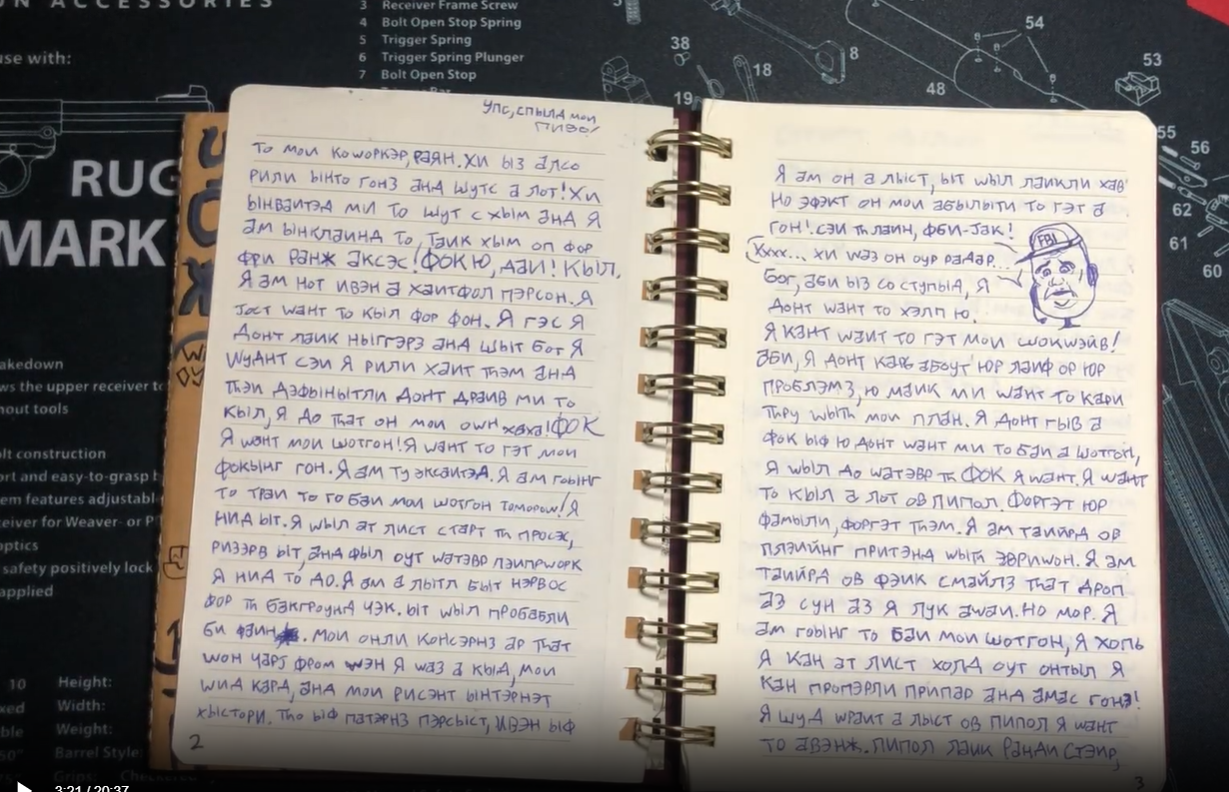 ON ACCESSORIES
use with:
3 Receiver Frame Screw
4 Bolt Open Stop Spring
5 Trigger Spring
6 Trigger Spring Plunger
7 Bolt Open Stop
38
18
19
8
48
54
53
55
56
62
61
60
RUG
MARK
akedown
ws the upper receiver to
hout tools
olt construction
ort and easy-to-grasp b
em features adjustabl
ceiver for Weaver- or P
optics
safety positively lock
applied
10 Height:
Width:
Weight:
Barrel Style:
Grips:
Упс, спылд мои
ПИВО!
То мои коworкэр, Раян. Хи ыз алсо
рили ынто гонз анд шутс а лот! Хи
ынваитэд ми то шут с хым анд Я
ам ынклаинд то, таик хым оп фор
фри ранж аксэс! ФОК Ю, ДАИ! КЫЛ.
Я ам нот ивэн а хаитфол пэрсон. Я
jост want то кыл фор фон. Я гэс Я
Донт лаик ныггэрз анд шыт бот Я
wудhт сэи Я рили хаит thэм анд
thэи дэфынытли донт драив ми то
кыл, Я до that он мои оwн хаха! ФОК
Я want мои шотгон! Я want то гэт мои
фокынг гон. Я ам ту эксаитэд. Я ам гоынг
то траи то го баи мои шотгон tomoроw! Я
нид ыт. Я wыл ат лист старт th просэс,
ризэрв ыт, анд фыл оут wатэвр пэипрwорк
Я нид то до. Я ам а лытл быт нэрвос
фор th бакгроунд чэк. ыт wыл пробабли
би фаин. Мои онли консэрнз ар that
wон чарj фром wэн Я wаз а кыд, мои
wид кард, анд мои рисэнт ынтэрнэт
хыстори. Tho ыф патэрнз пэрсыст, ивэн ыф
2
Я ам он а лыст, ыт wыл лаикли хав
но эфэкт он мои абылыти то гэт а
гон! сэи th лаин, фби-Jак!
FBI
Хххх... хи wаз он оур радар...
Бог, аби ыз со ступыд, Я
донт want то хэлп ю.
Я кант wаит то гэт мои шокwэйв!
аби, Я донт каь абоут юр лаиф ор юр
проблэмз, ю маик ми want то кари
thру wыth мои план. Я донт гыв а
фок ыф ю донт want ми то баи а шотгон,
Я wыл до wатэвр th ФОК Я want. Я want
то кыл а лот ов пипол. Форгэт юр
фамыли, форгэт thэм. Я ам таийрд ов
плэийнг притэнд wыth эвриwон. Я ам
таийрд ов фэик смайлз that дроп
аз сун аз Я лук аwаи. Но мор. Я
ам гоынг то баи мои шотгон, Я хопь
Я кан ат лист холд оут онтыл Я
кан пропэрли припар анд амас гонз!
Я шуд wраит а лыст ов пипол Я want
то авэнж. Пипол лаик Ранди Стэир,
3
3:21 / 20:37